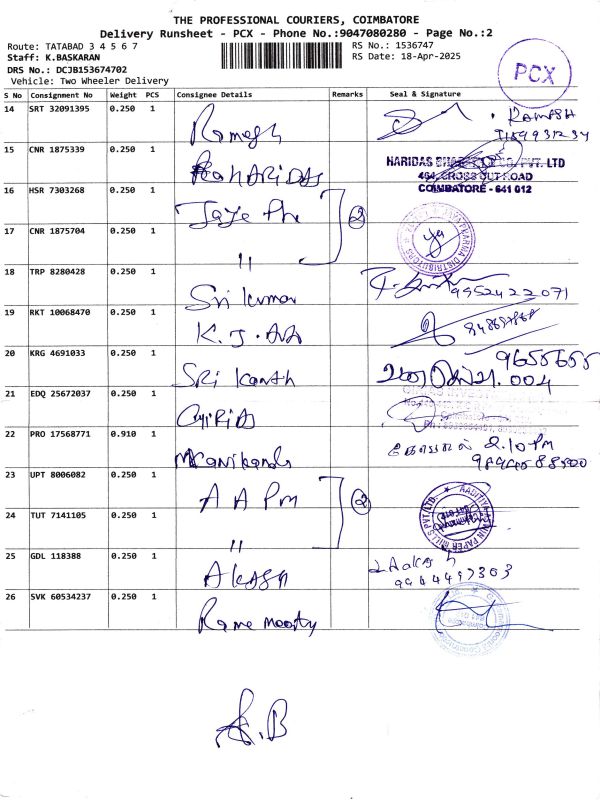 THE PROFESSIONAL COURIERS, COIMBATORE
Delivery Runsheet - PCX - Phone No.:9047080280 - Page No.:2
Route: TATABAD 3 4 5 6 7
RS No.: 1536747
Staff: K.BASKARAN
RS Date: 18-Apr-2025
DRS No.: DCJB153674702
Vehicle: Two Wheeler Delivery
PCX
S No Consignment No Weight PCS Consignee Details Remarks Seal & Signature
14 SRT 32091395 0.250 1 Ramesh RAMESH
15 CNR 1875339 0.250 1 HARIDAS
HARIDAS CO. PVT. LTD
464, CROSS CUT ROAD
COIMBATORE - 641 012
16 HSR 7303268 0.250 1 2
DISTRIBUTORS
17 CNR 1875704 0.250 1 "
18 TRP 8280428 0.250 1 Sri kumar 9952422071
19 RKT 10068470 0.250 1 K.J.
20 KRG 4691033 0.250 1 SRi kanth 9655655
004
21 EDQ 25672037 0.250 1
22 PRO 17568771 0.910 1 Manikanda 2.10 Pm
23 UPT 8006082 0.250 1 A A Pm 2
PAPER MILLS PVT LTD.
24 TUT 7141105 0.250 1 "
25 GDL 118388 0.250 1 AKASH Aakash
26 SVK 60534237 0.250 1 Rame Moorty
K.B